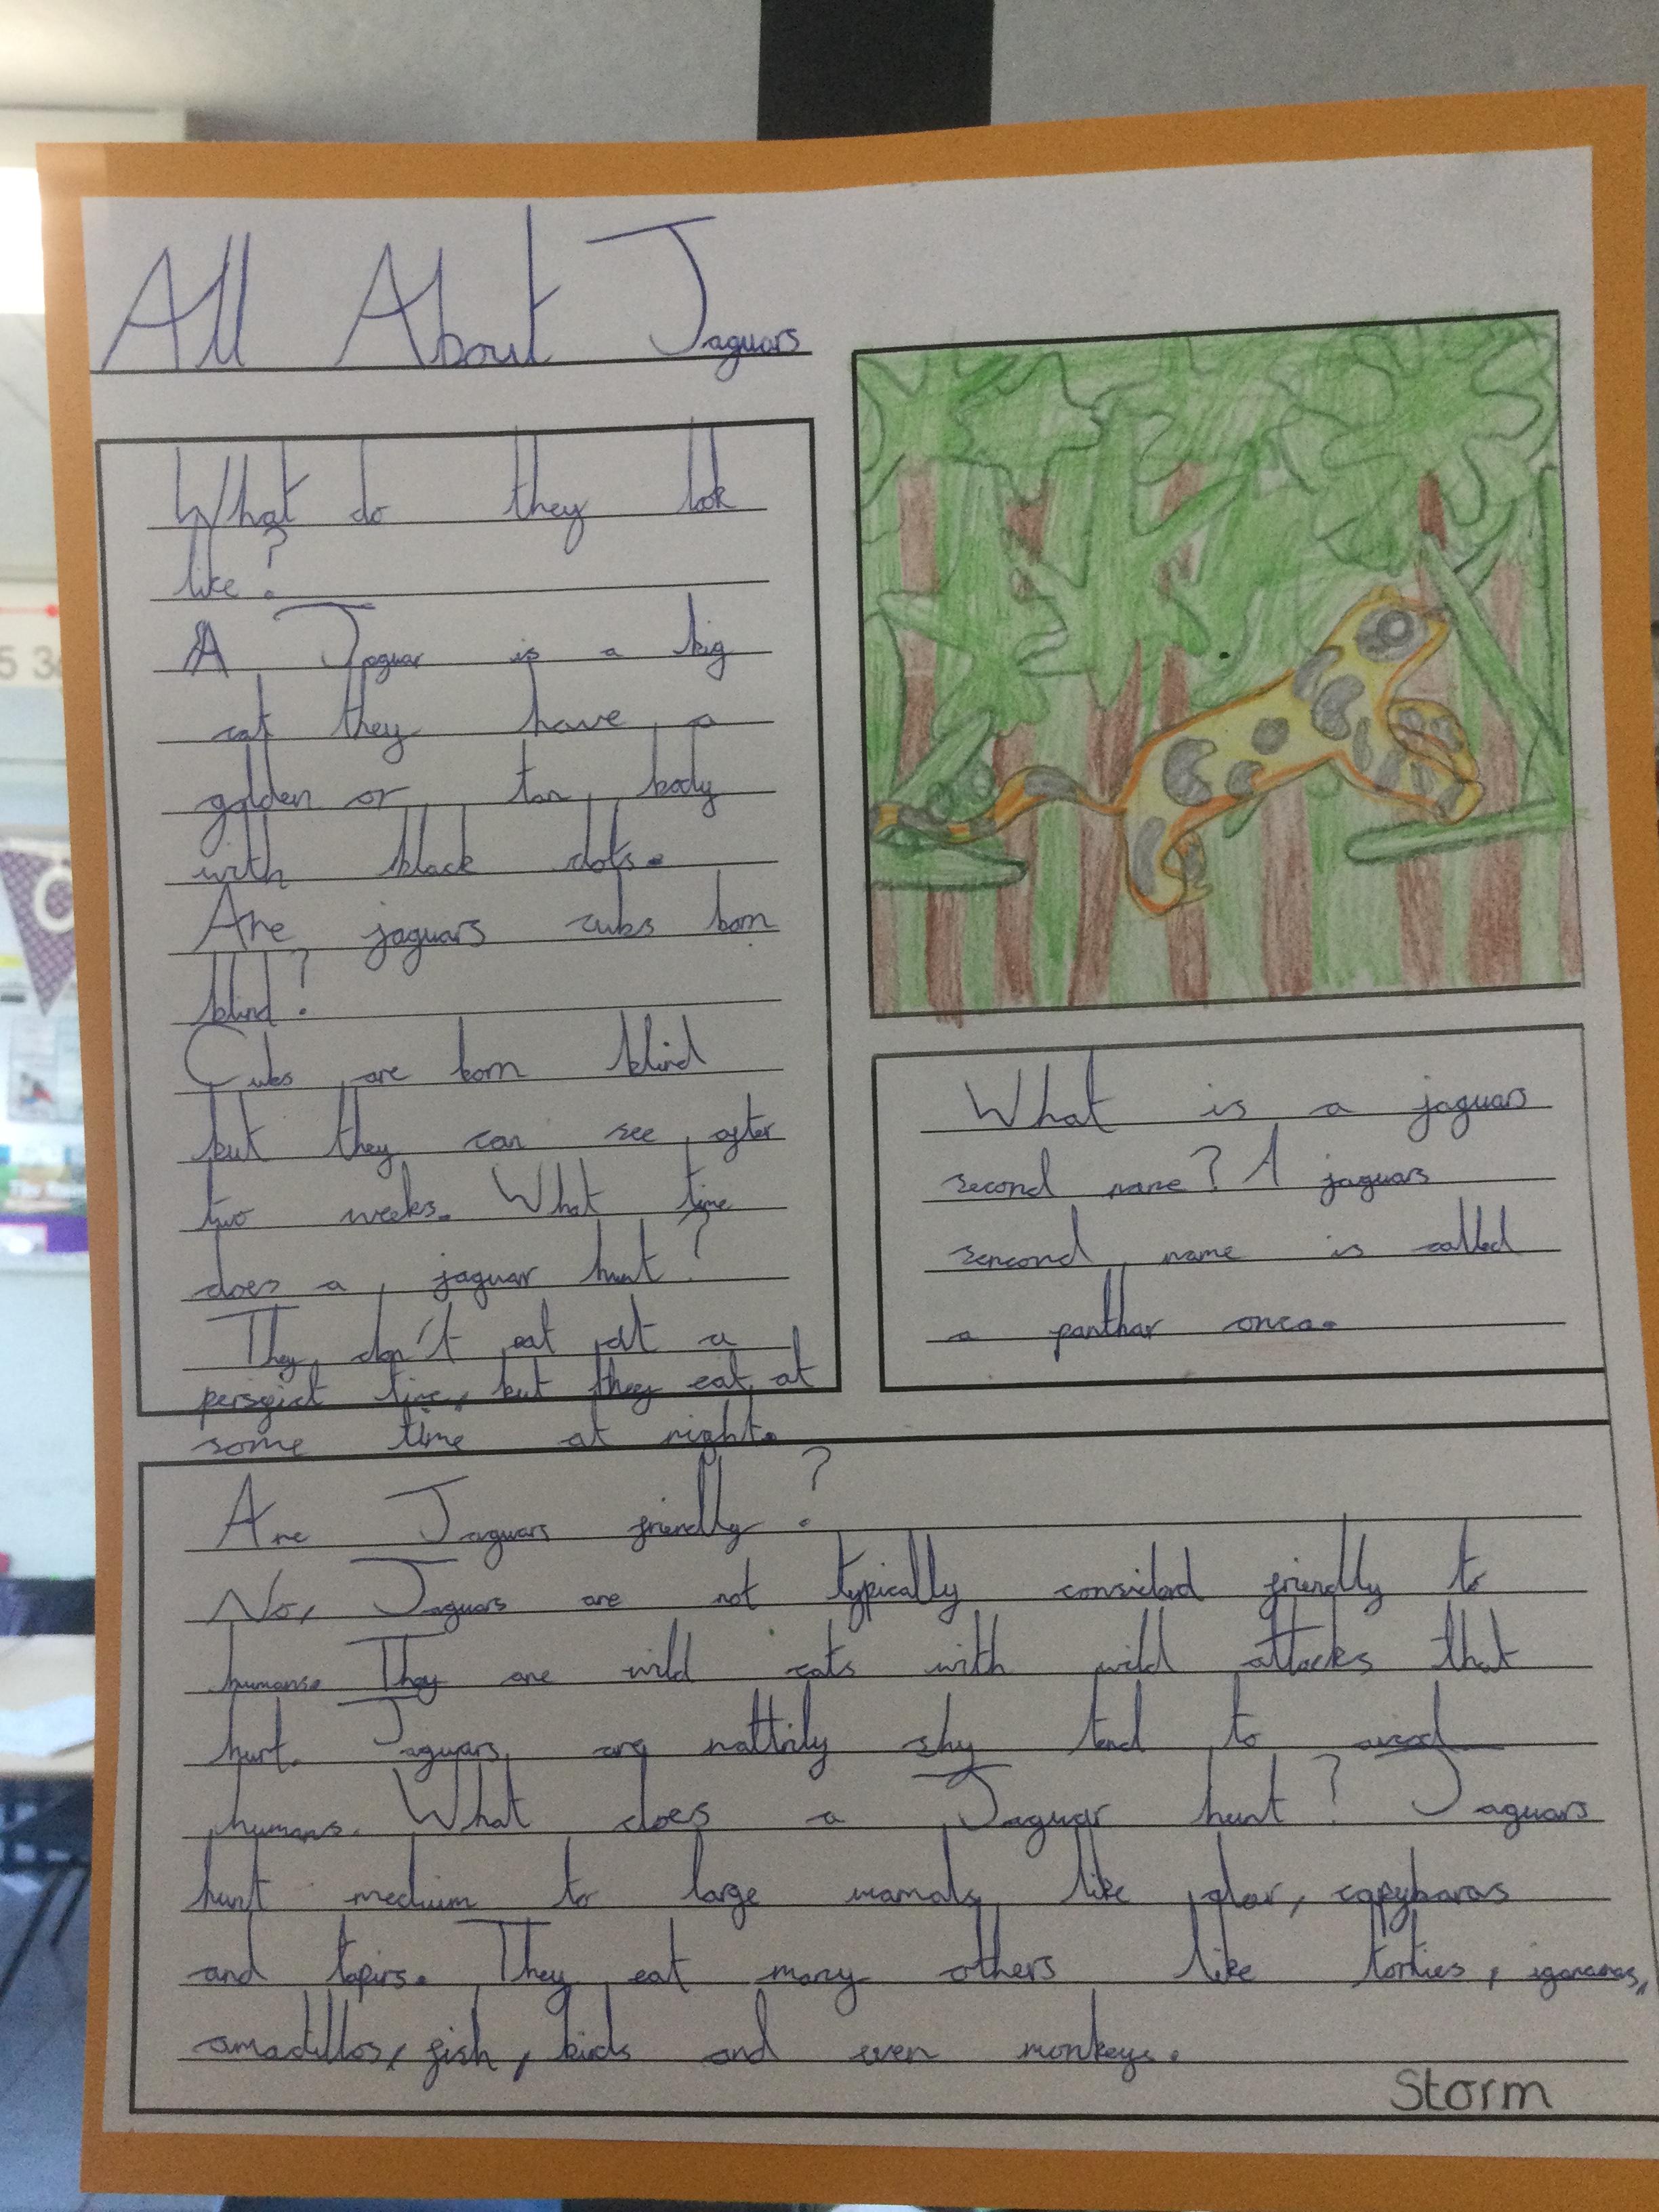 All About Jaguars
What do they look
like?
A Jaguar is a big
cat they have a
golden or tan body
with black dots.
Are jaguars cubs born
blind?
Cubs are born blind
but they can see after
two weeks. What time
does a jaguar hunt?
They don't eat at a
persgict time, but they eat at
some time at night.
What is a jaguars
second name? A jaguars
sencond name is called
a panthar onca.
Are Jaguars friendly?
No, Jaguars are not typically considerd friendly to
humans. They are wild cats with wild attacks that
hurt. Jaguars are nattrily shy tend to avoid
humans. What does a Jaguar hunt? Jaguars
hunt medium to large mamals like dear, capybaras
and tapirs. They eat many others like torties, igananas,
amadillos, fish, birds and even monkeys.
Storm